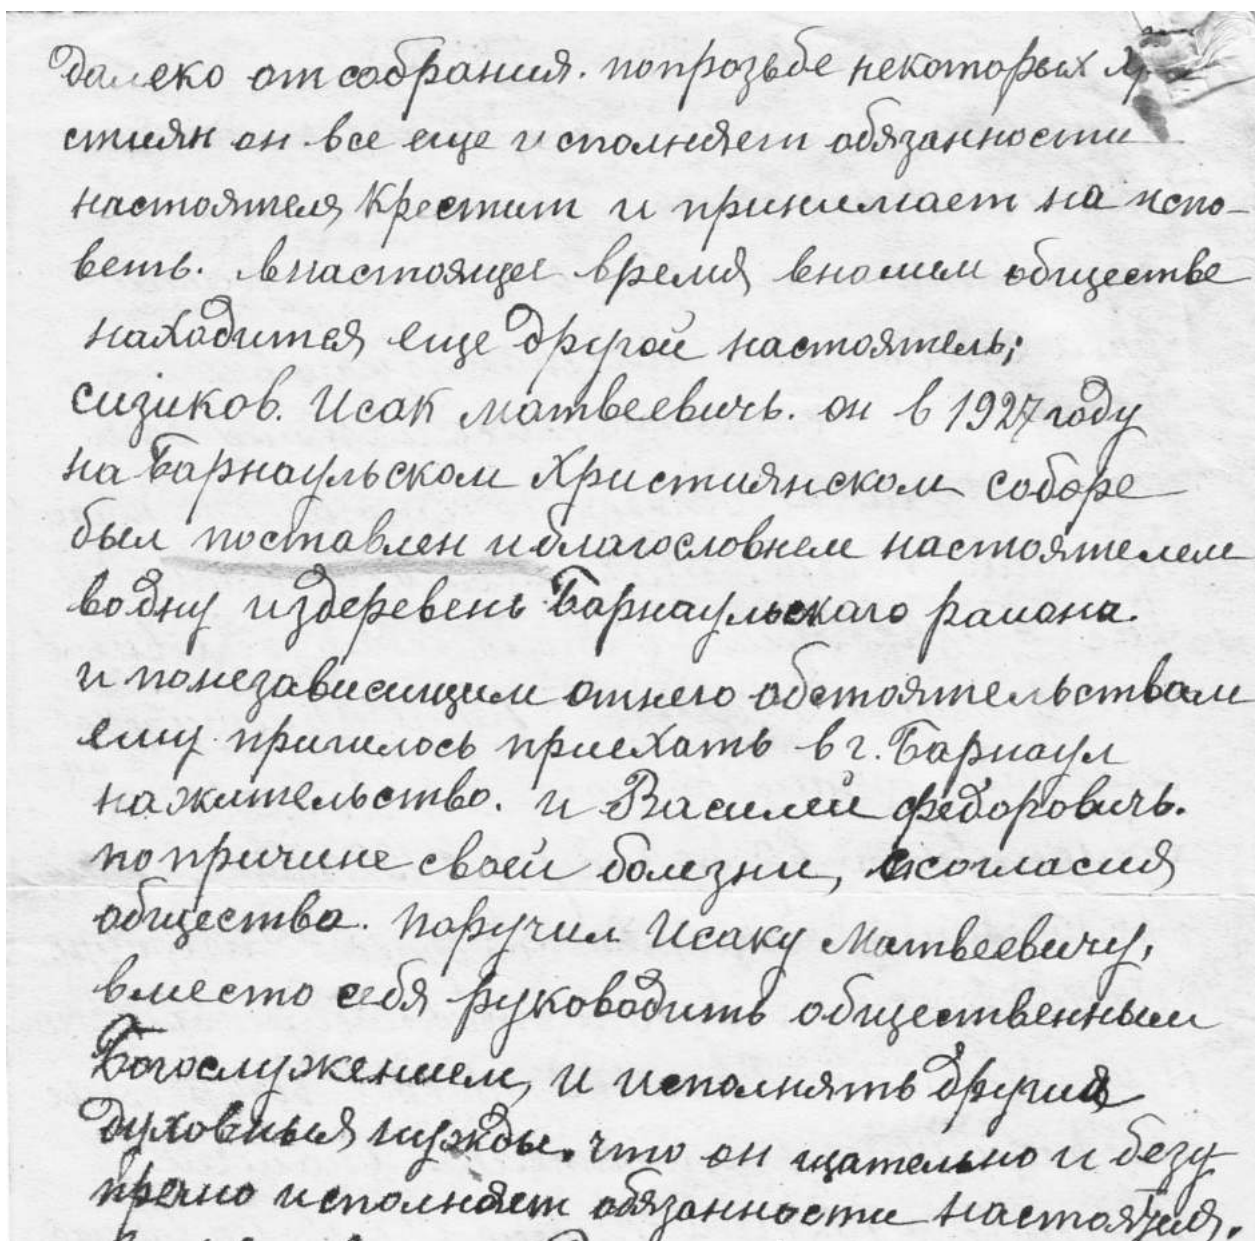 далеко от собрания. попрозьбе некоторых хри
стиян он все еще исполняет обязанности
настоятеля, крестит и принимает на испо-
веть. внастоящее время внашем обществе
находится еще другой настоятель;
сизиков. Исак матвеевичь. он в 1927 году
на Барнаульском Християнском соборе
был поставлен и благословнем настоятелем
водну издеревень Барнаульскаго раиона.
и понезависищим отнего обстоятельствам
ему пришлось приехать в г. Барнаул
нажительство. и Василий федоровичь.
по причине своей болезни, и согласия
общества. поручил Исаку Матвеевичу,
вместо себя руководить общественным
Богослужением, и исполнять другия
духовныя нужды. что он щательно и безу
пречно исполняет обязанности настоятеля.